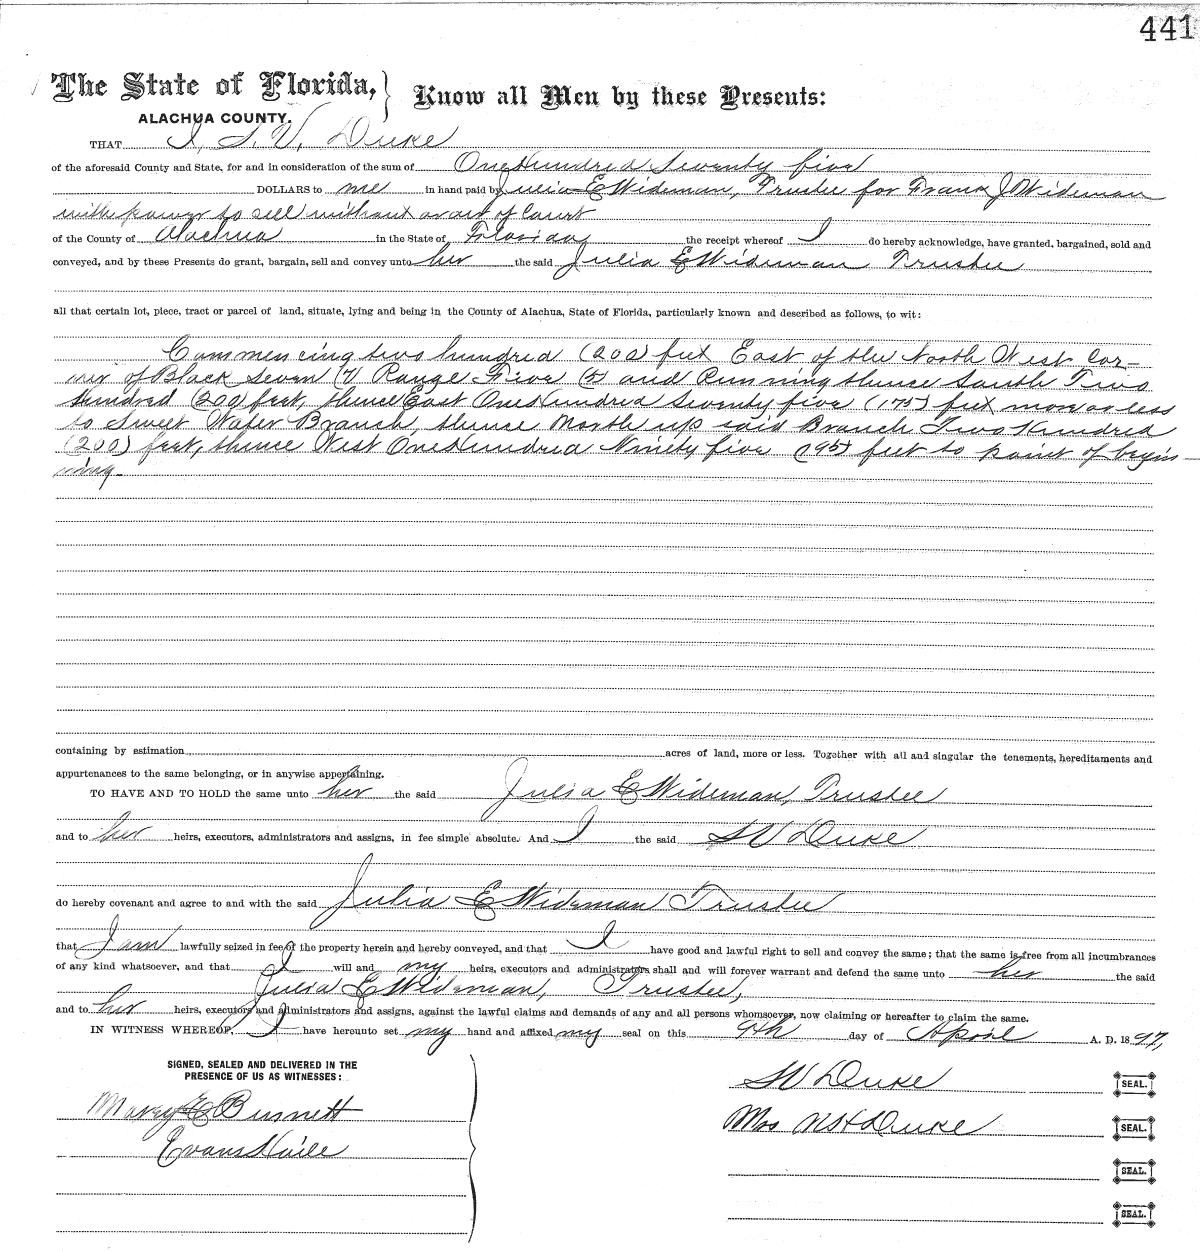 441
The State of Florida, } Know all Men by these Presents:
ALACHUA COUNTY.
THAT I, S. V. Duke
of the aforesaid County and State, for and in consideration of the sum of One Hundred Seventy five
DOLLARS to me in hand paid by Julia E Wideman, Trustee for Frank J Wideman
with power to sell without order of Court
of the County of Alachua in the State of Florida the receipt whereof I do hereby acknowledge, have granted, bargained, sold and
conveyed, and by these Presents do grant, bargain, sell and convey unto her the said Julia E Wideman Trustee
all that certain lot, piece, tract or parcel of land, situate, lying and being in the County of Alachua, State of Florida, particularly known and described as follows, to wit:
Commencing two hundred (200) feet East of the North West Cor-
ner of Block Seven (7) Range Five (5) and Running thence South Two
Hundred (200) feet, thence East One Hundred Seventy five (175) feet more or less
to Sweet Water Branch, thence North up said Branch Two Hundred
(200) feet, thence West One Hundred Ninety five (195) feet to point of begin-
ning.
containing by estimation acres of land, more or less. Together with all and singular the tenements, hereditaments and
appurtenances to the same belonging, or in anywise appertaining.
TO HAVE AND TO HOLD the same unto her the said Julia E Wideman, Trustee
and to her heirs, executors, administrators and assigns, in fee simple absolute. And I the said S V Duke
do hereby covenant and agree to and with the said Julia E Wideman Trustee
that I am lawfully seized in fee of the property herein and hereby conveyed, and that I have good and lawful right to sell and convey the same; that the same is free from all incumbrances
of any kind whatsoever, and that I will and my heirs, executors and administrators shall and will forever warrant and defend the same unto her the said
Julia E Wideman, Trustee,
and to her heirs, executors and administrators and assigns, against the lawful claims and demands of any and all persons whomsoever, now claiming or hereafter to claim the same.
IN WITNESS WHEREOF, I have hereunto set my hand and affixed my seal on this 9th day of April A. D. 1897,
SIGNED, SEALED AND DELIVERED IN THE
PRESENCE OF US AS WITNESSES:
Mary E Burnett
Evans Haile
S V Duke SEAL.
Mrs N H Duke SEAL.
SEAL.
SEAL.